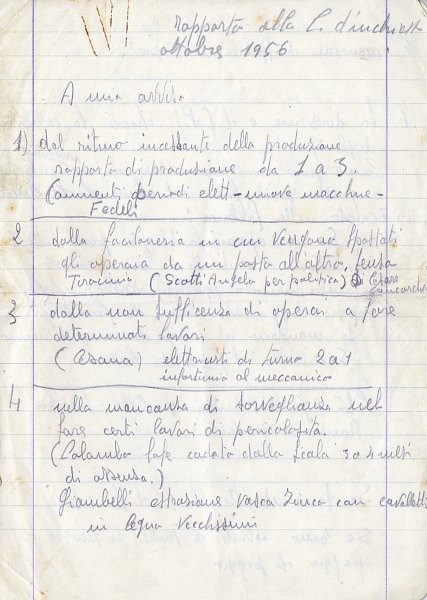 rapporto alla C. d'inchiest
ottobre 1956
A mio avviso
1) dal ritmo incessante della produzione
rapporto di produzione da 1 a 3.
(aumenti periodi elett - nuove macchine -
Fedeli
2 dalla faciloneria in cui vengono spostati
gli operai da un posto all'altro, senza
Tirocinio (Scotti Angelo per politica)
3 dalla non sufficenza di operai a fare
determinati lavori
(Cesana) elettricisti di turno 2 a 1
infortunio al meccanico
4 nella mancanza di sorveglianza nel
fare certi lavori di pericolosità
(Colombo cadato dalla scala 3 o 4 mesi
di assenza.)
Giambelli estrazione vasca zinco con cavalletti
in legno vecchissimi